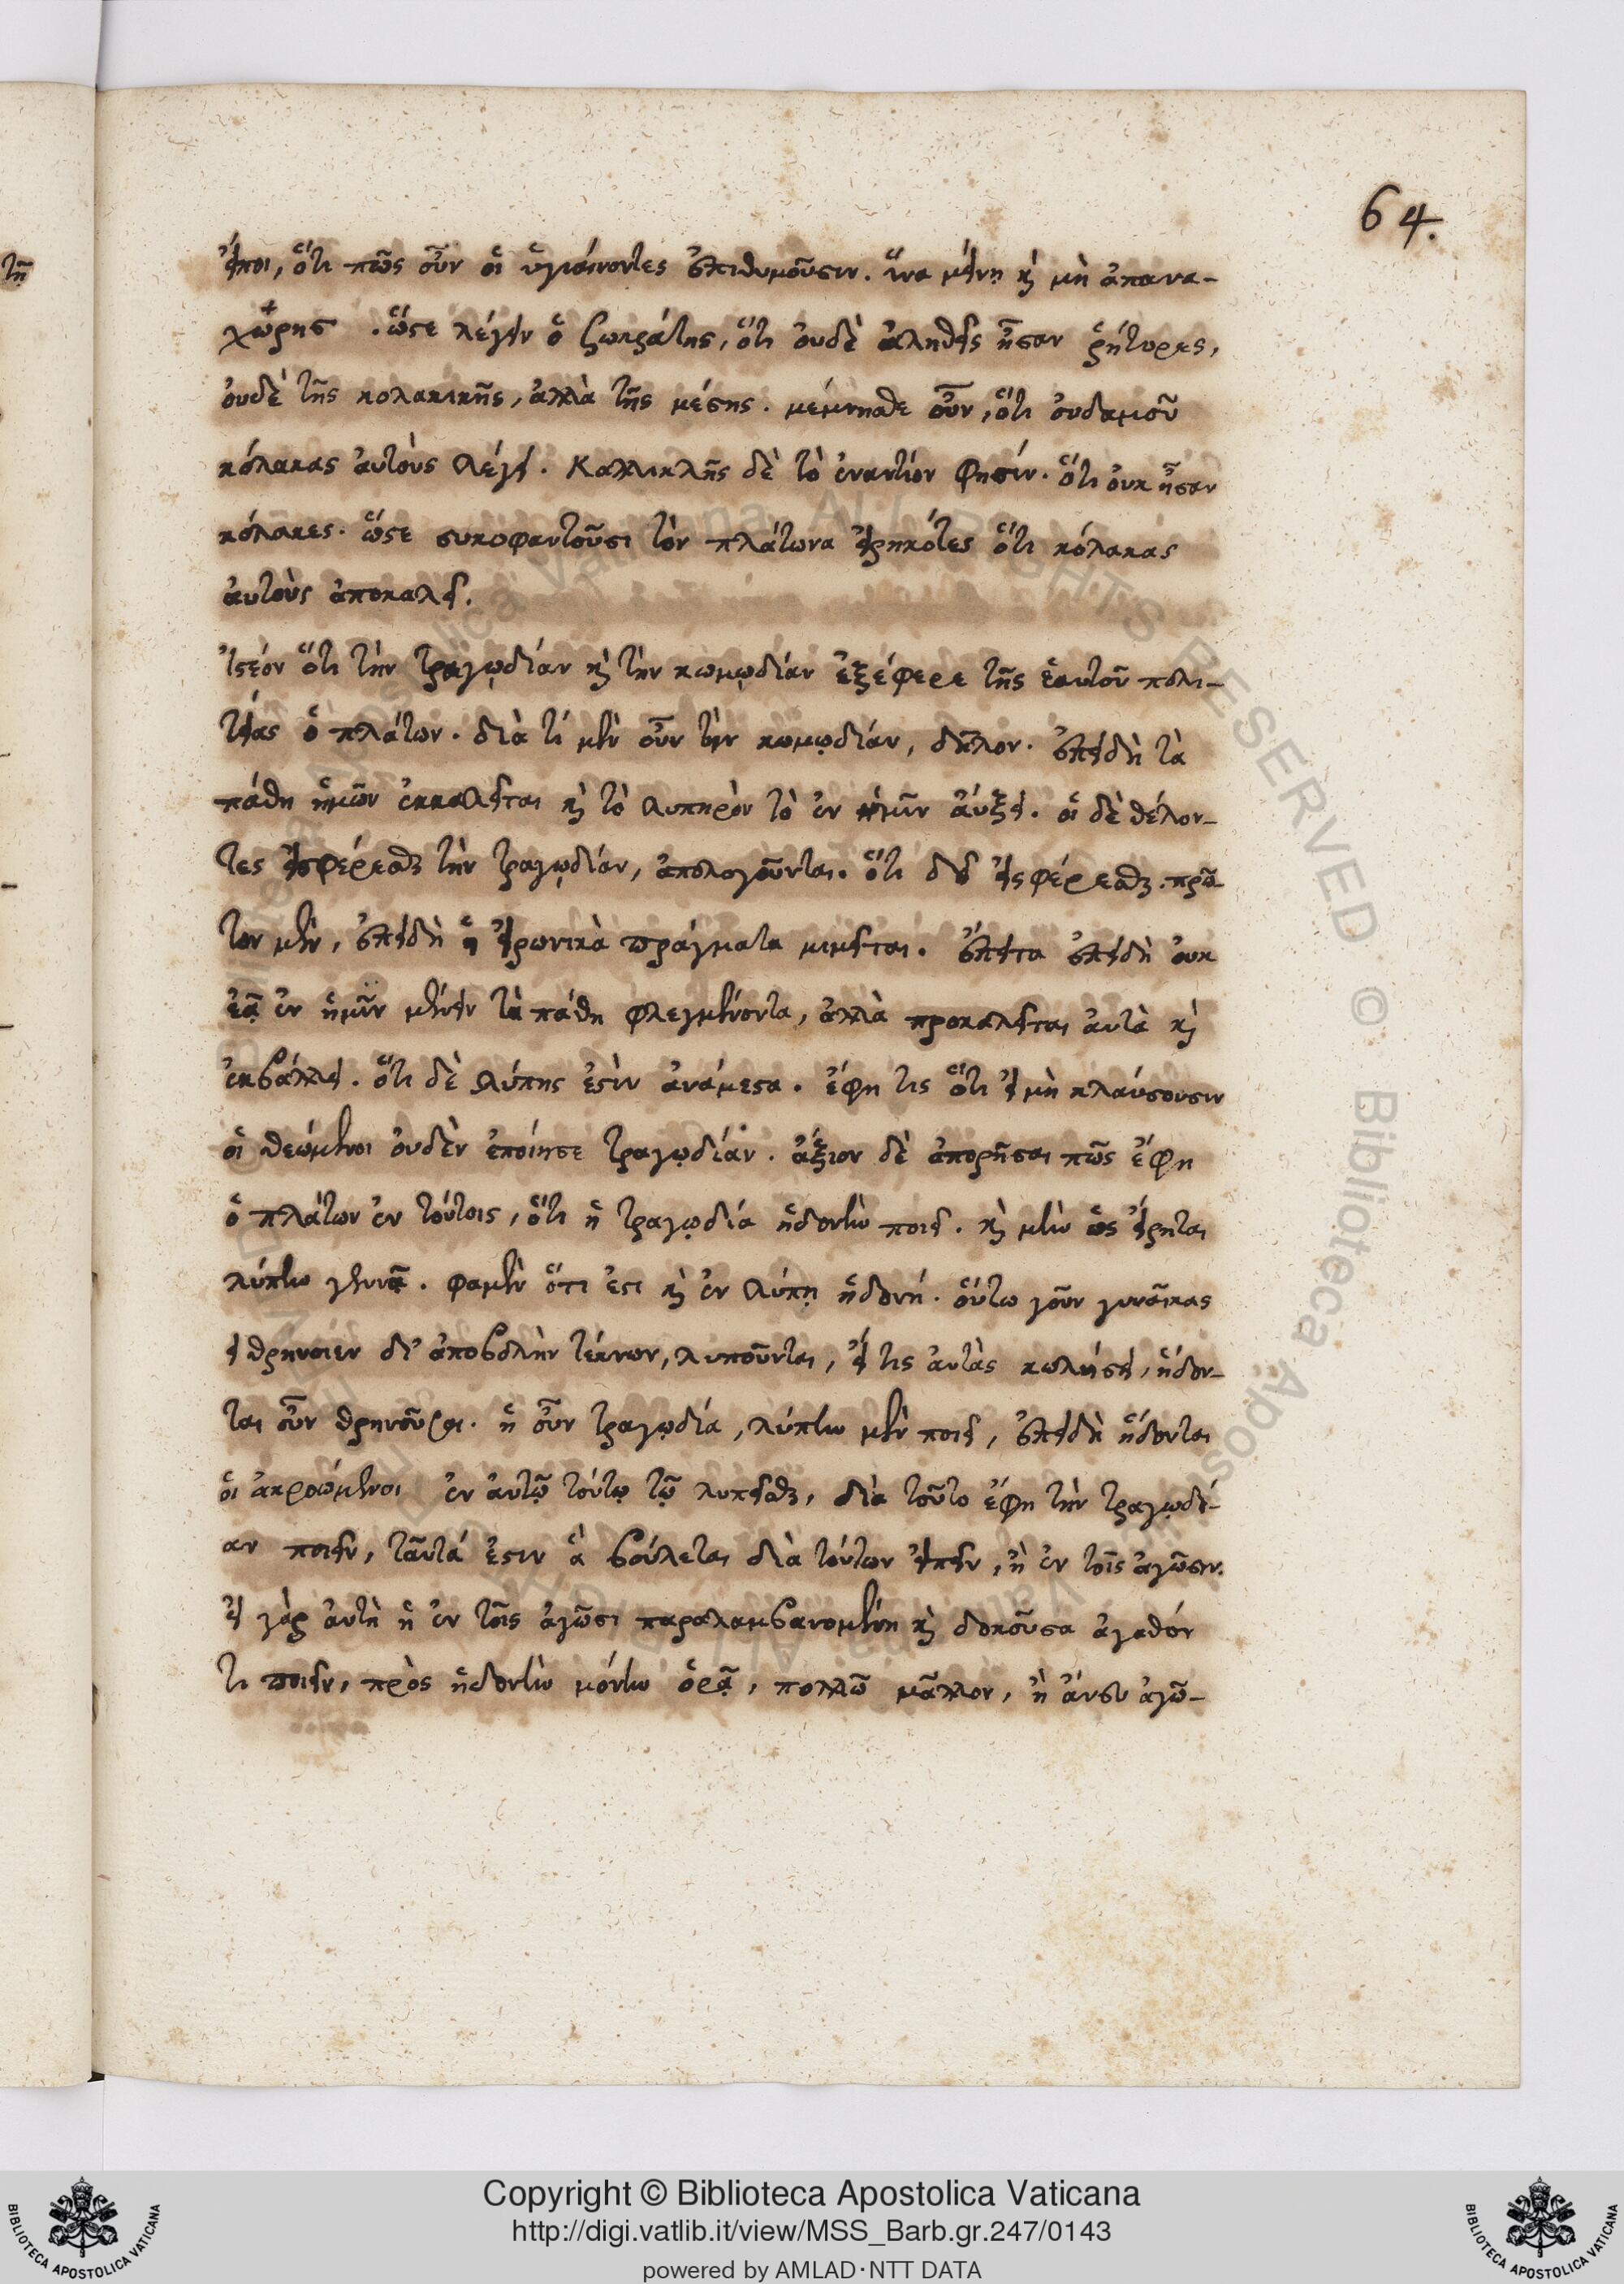 64.
εἴποι, ὅτι πῶς οὖν οἱ ὑγιαίνοντες ἐπιθυμοῦσιν. ἵνα μείνῃ καὶ μὴ ἀπανα-
χώρησ . ὥστε λέγειν ὁ Σωκράτης, ὅτι οὐδὲ ἀληθεῖς ἦσαν ῥήτορες,
οὐδὲ τῆς κολακικῆς, ἀλλὰ τῆς μέσης. μέμνησθε οὖν, ὅτι οὐδαμοῦ
κόλακας αὐτοὺς λέγει. Καλλικλῆς δὲ τὸ ἐναντίον φησίν. ὅτι οὐκ ἦσαν
κόλακες. ὥστε συκοφαντοῦσι τὸν πλάτωνα εἰρηκότες ὅτι κόλακας
αὐτοὺς ἀποκαλεῖ.
ἰστέον ὅτι τὴν τραγῳδίαν καὶ τὴν κωμῳδίαν ἐξέφερε τῆς ἑαυτοῦ πολι-
τείας ὁ πλάτων. διὰ τί μὲν οὖν τὴν κωμῳδίαν, δῆλον. ἐπειδὴ τὰ
πάθη ἡμῶν ἐκκαλεῖται καὶ τὸ λυπηρὸν τὸ ἐν ἡμῖν αὔξει. οἱ δὲ θέλον-
τες εἰσφέρεσθαι τὴν τραγῳδίαν, ἀπολογοῦνται. ὅτι δεῖ εἰσφέρεσθαι. πρῶ-
τον μὲν, ἐπειδὴ ἡ εἰρωνικὰ πράγματα μιμεῖται. ἔπειτα ἐπειδὴ οὐκ
ἐᾷ ἐν ἡμῖν μένειν τὰ πάθη φλεγμένοντα, ἀλλὰ προκαλεῖται αὐτὰ καὶ
ἐκβάλλει. ὅτι δὲ λύπης ἐστὶν ἀνάμεστα. ἔφη τις ὅτι εἰ μὴ κλαύσουσιν
οἱ θεώμενοι οὐδὲν ἐποίησε τραγῳδίαν. ἄξιον δὲ ἀπορῆσαι πῶς ἔφη
ὁ πλάτων ἐν τούτοις, ὅτι ἡ τραγῳδία ἡδονὴν ποιεῖ. καὶ μὴν ὡς εἴρηται
λύπην γεννᾷ. φαμὲν ὅτι ἐστι καὶ ἐν λύπῃ ἡδονή. οὕτω γοῦν γυναῖκας
εἰ θρηνοιεν δι' ἀποβολὴν τέκνων, λυποῦνται, εἴ τις αὐτὰς κωλύσει, ἥδον-
ται οὖν θρηνοῦσαι. ἡ οὖν τραγῳδία, λύπην μὲν ποιεῖ, ἐπειδὴ ἥδονται
οἱ ἀκροώμενοι ἐν αὐτῷ τούτῳ τῷ λυπεῖσθαι, διὰ τοῦτο ἔφη τὴν τραγῳδί-
αν ποιεῖν, ταῦτά ἐστιν ἃ βούλεται διὰ τούτων εἰπεῖν, ἢ ἐν τοῖς ἀγῶσιν.
εἰ γὰρ αὐτὴ ἡ ἐν τοῖς ἀγῶσι παραλαμβανομένη καὶ δοκοῦσα ἀγαθόν
τι ποιεῖν, πρὸς ἡδονὴν μόνην ὁρᾷ, πολλῷ μᾶλλον, ἢ ἄνευ ἀγώ-
Copyright © Biblioteca Apostolica Vaticana
http://digi.vatlib.it/view/MSS_Barb.gr.247/0143
powered by AMLAD·NTT DATA